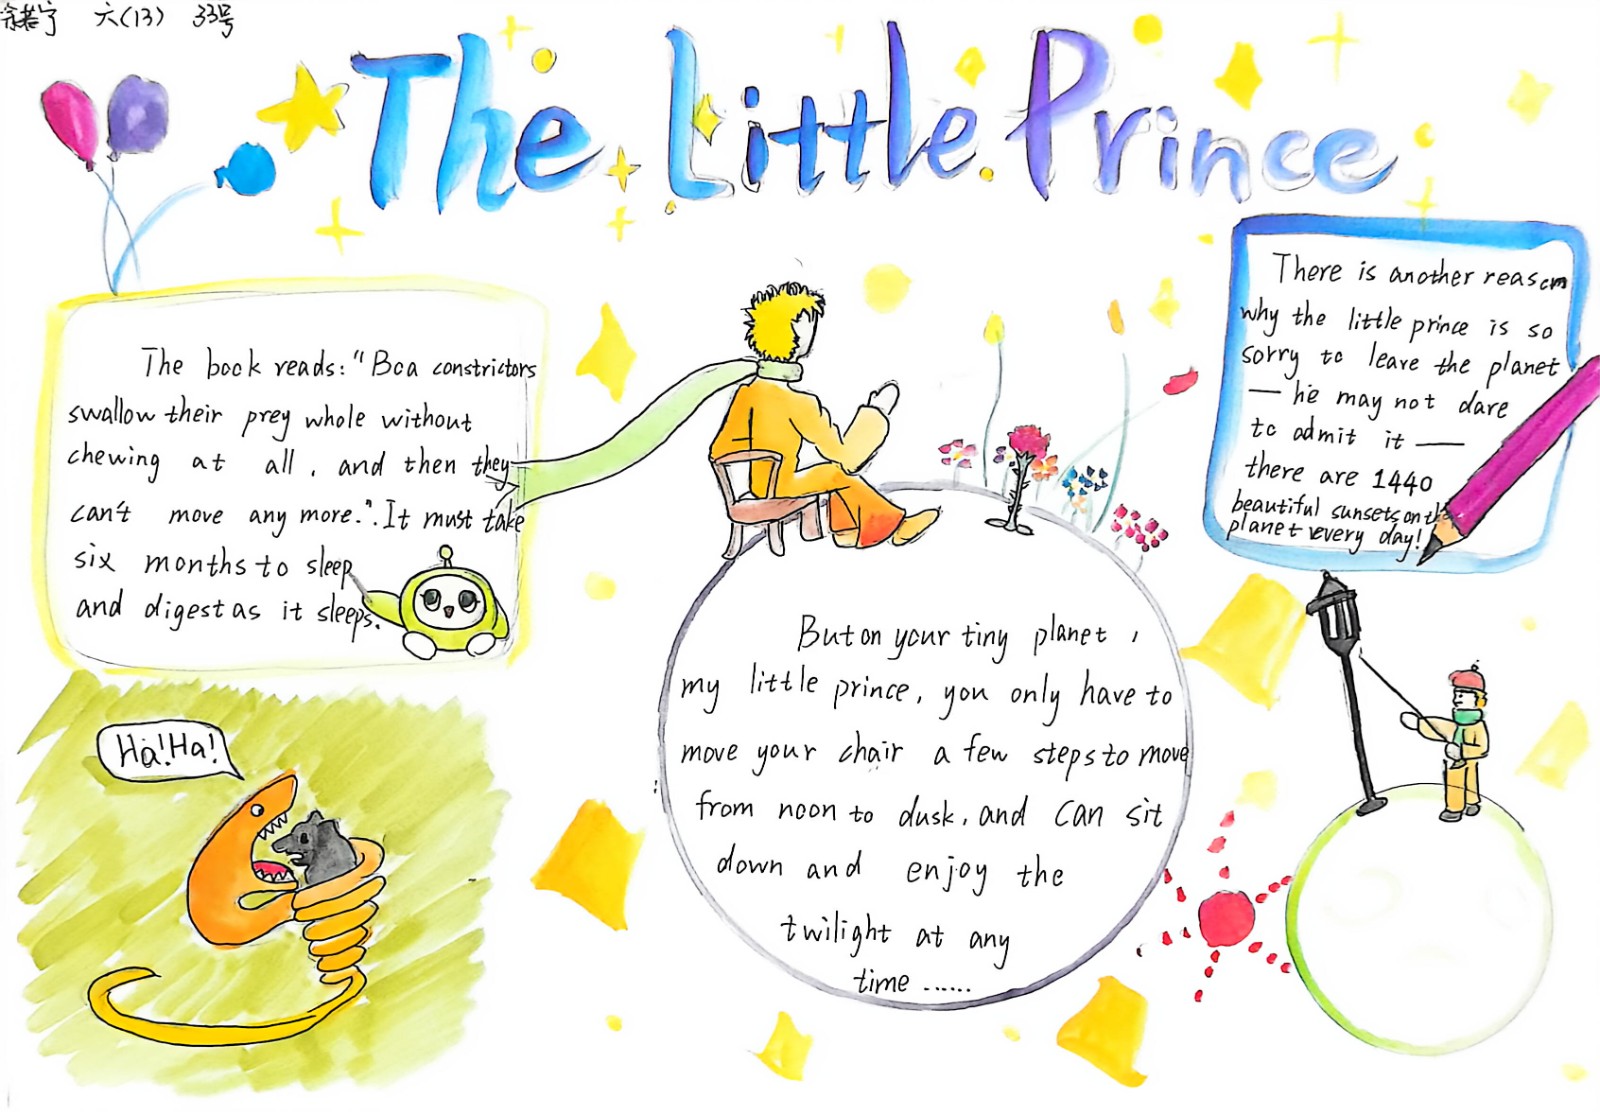 六(13) 33号
The Little Prince
The book reads: "Boa constrictors
swallow their prey whole without
chewing at all, and then they
can't move any more.". It must take
six months to sleep
and digest as it sleeps.
There is another reason
why the little prince is so
sorry to leave the planet
— he may not dare
to admit it —
there are 1440
beautiful sunsets on the
planet every day!
But on your tiny planet,
my little prince, you only have to
move your chair a few steps to move
from noon to dusk, and can sit
down and enjoy the
twilight at any
time ......
Ha! Ha!